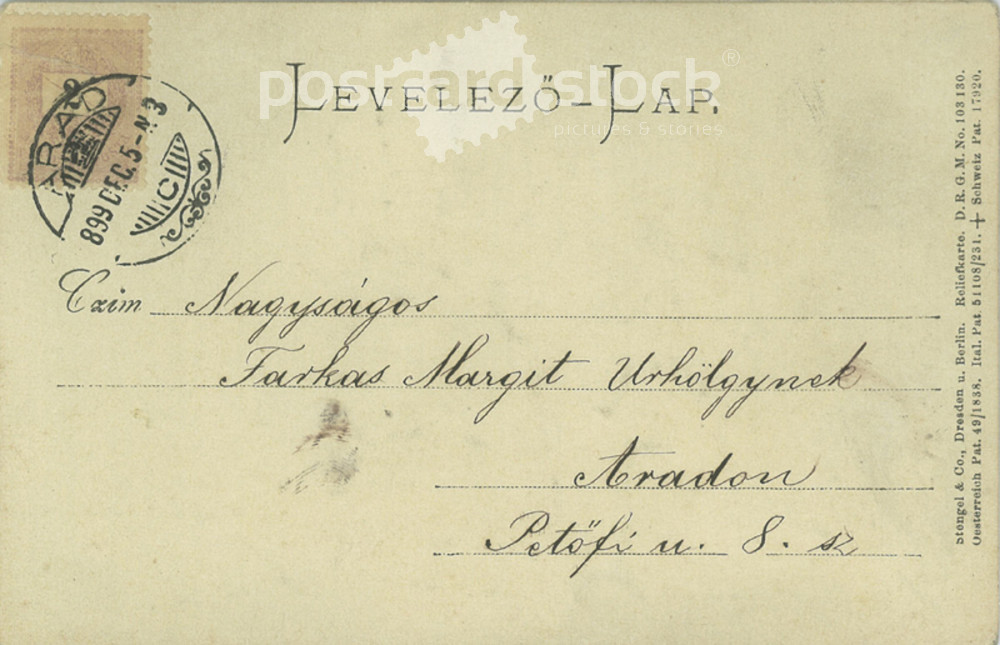 postcard stock®
pictures & stories
LEVELEZŐ-LAP.
ARAD
899 DEC. 5-N3
C
Czim Nagyságos
Farkas Margit Urhölgynek
Aradon
Petőfi u. 8. sz
Stengel & Co., Dresden u. Berlin. Reliefkarte. D. R. G. M. No. 103130.
Oesterreich Pat. 49/1838. Ital. Pat. 51108/231. + Schweiz Pat. 17920.